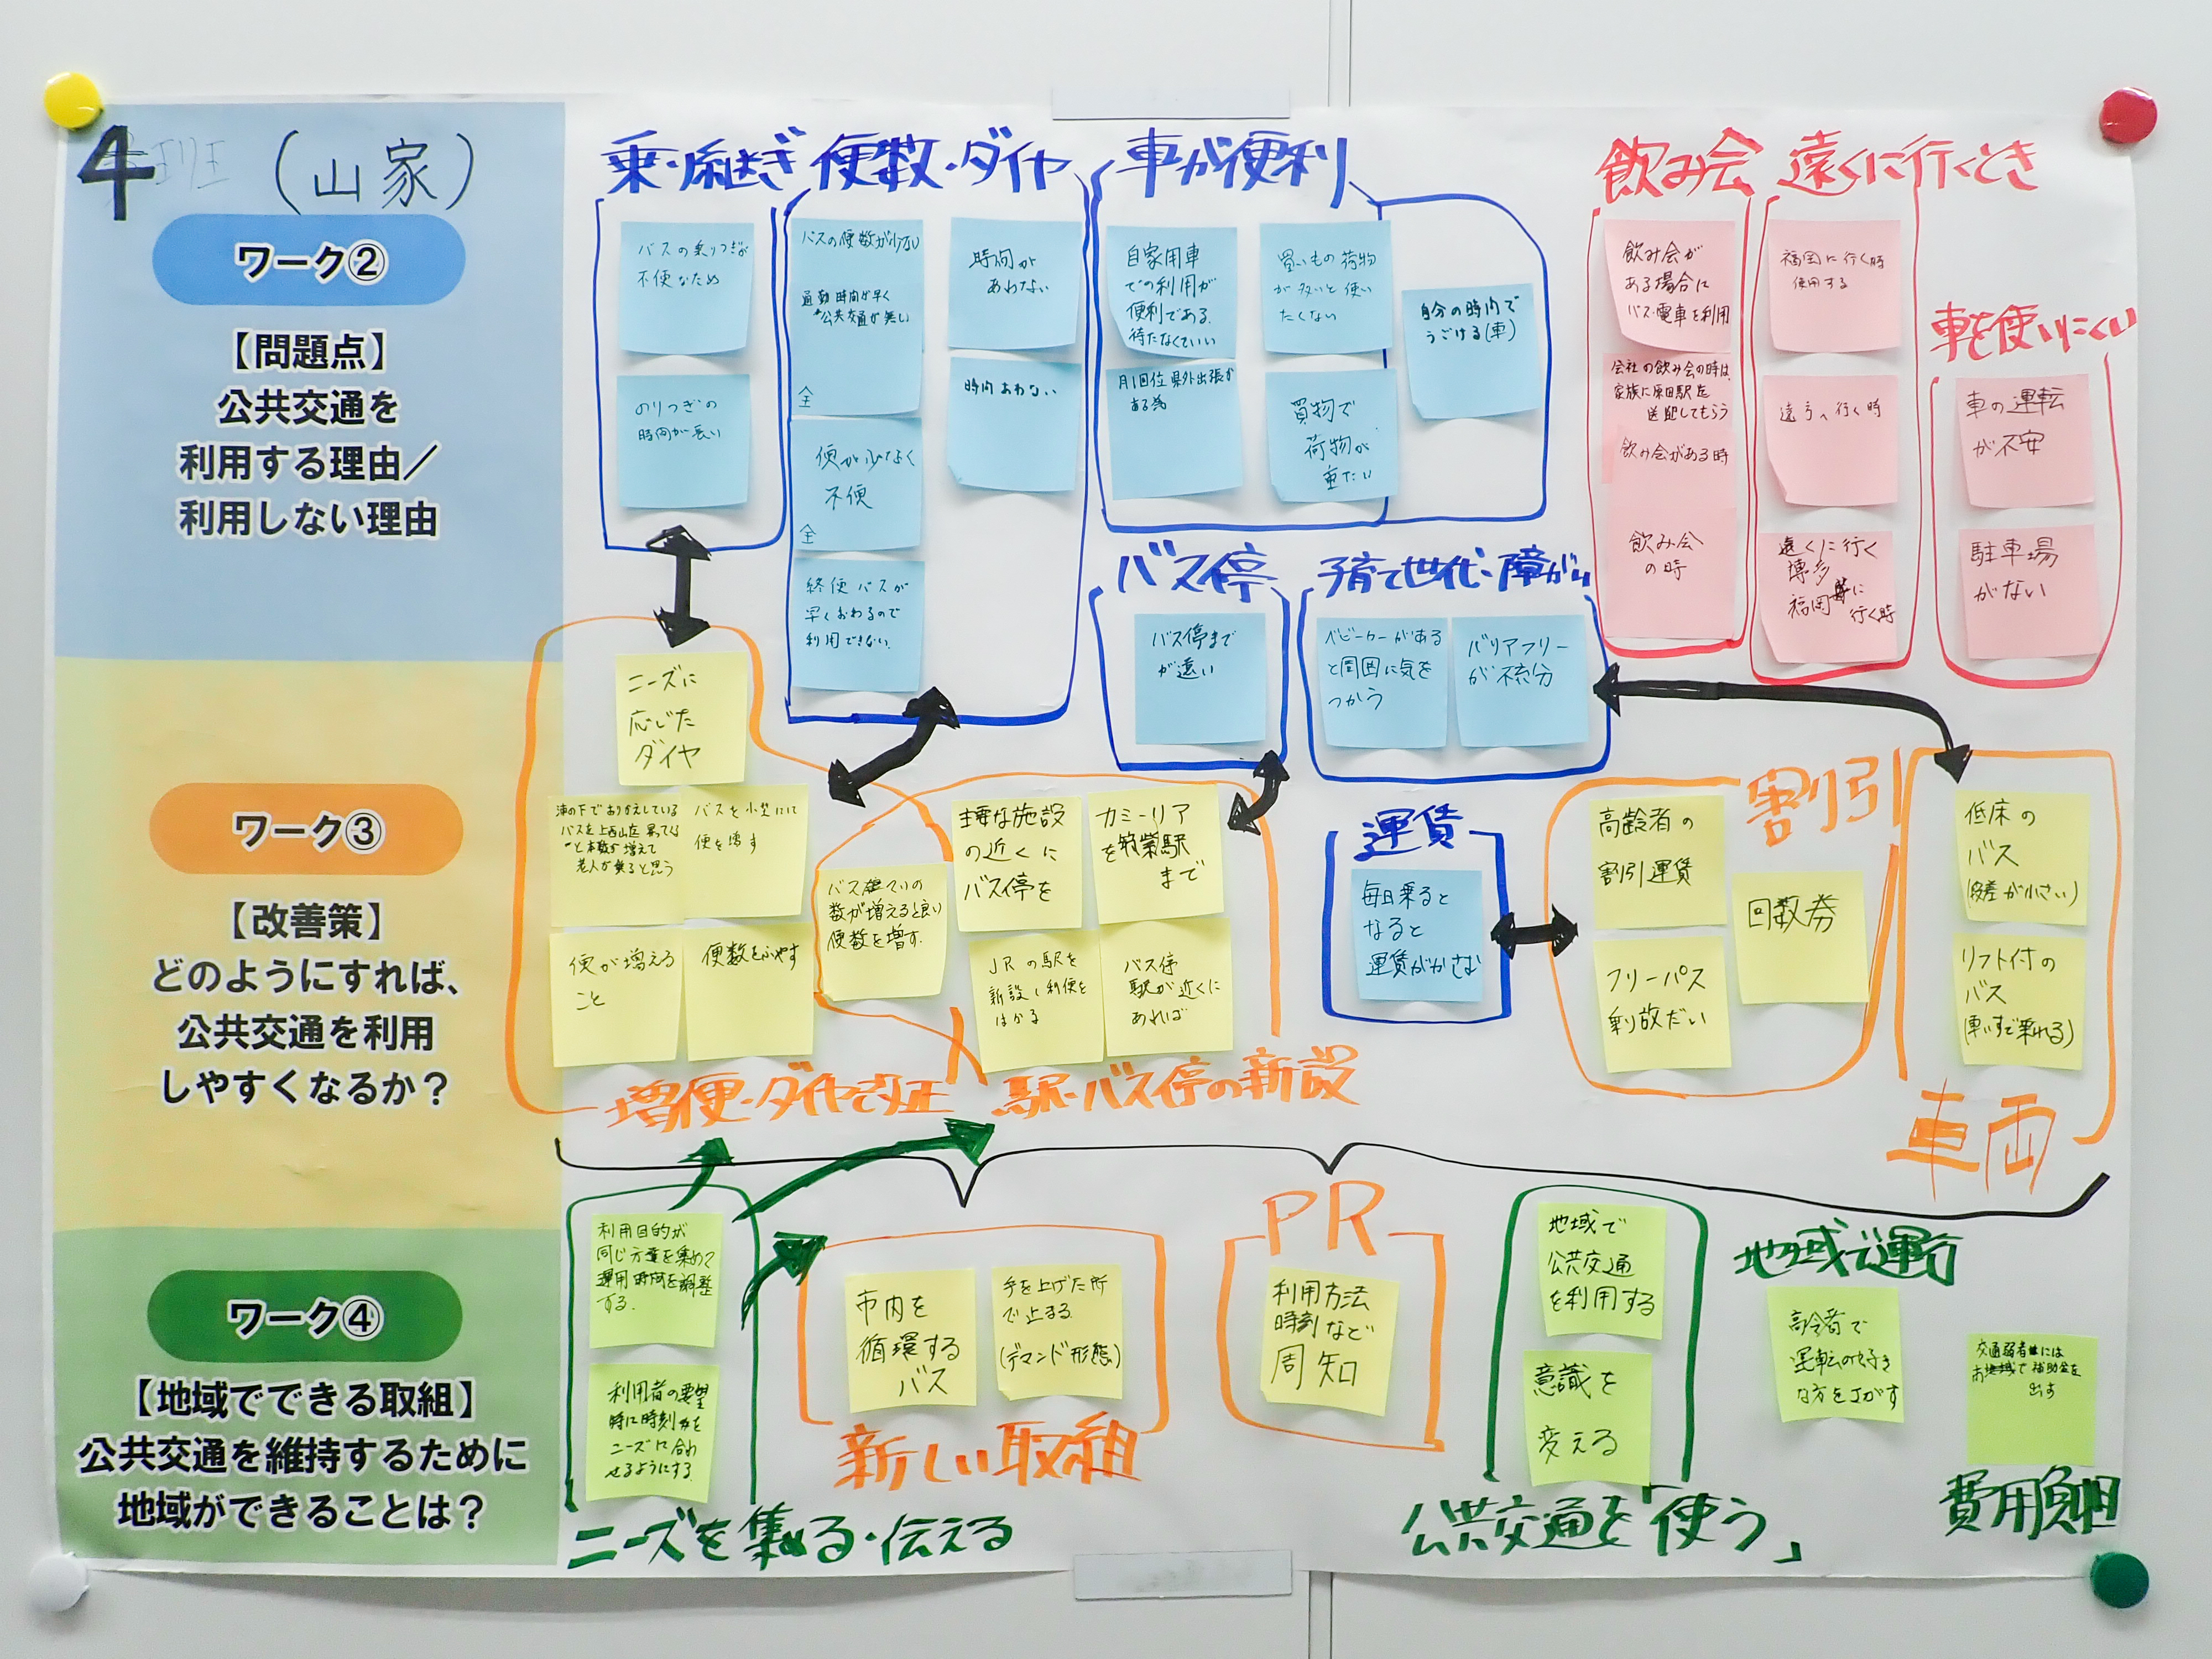 4班（山家）
ワーク②
【問題点】
公共交通を
利用する理由／
利用しない理由
乗り継ぎ
バスの乗りつぎが
不便なため
のりつぎの
時間が長い
便数・ダイヤ
バスの便数が少ない
通勤時間が早く
公共交通が無し
全
便が少なく
不便
全
終便バスが
早くおわるので
利用できない
時間が
あわない
時間あわない
車が便利
自家用車
での利用が
便利である.
待たなくていい
月1回位県外出張が
ある為
買いもの荷物
が多いと使い
たくない
買物で
荷物が
重たい
自分の時間で
うごける(車)
バス停
バス停まで
が遠い
子育て世代・障がい
ベビーカーがある
と周囲に気を
つかう
バリアフリー
が不充分
飲み会
飲み会が
ある場合に
バス・電車を利用
会社の飲み会の時は、
家族に原田駅を
送迎してもらう
飲み会がある時
飲み会
の時
遠くに行くとき
福岡に行く時
使用する
遠方へ行く時
遠くに行く
博多
福岡に
行く時
車を使いにくい
車の運転
が不安
駐車場
がない
運賃
毎日乗ると
なると
運賃がかさむ
ワーク③
【改善策】
どのようにすれば、
公共交通を利用
しやすくなるか？
ニーズに
応じた
ダイヤ
バスを上西山迄
本数が増えて
老人が乗ると思う
バスを小型にして
便を増す
便が増える
こと
便数をふやす
数が増えると良い
便数を増す.
増便・ダイヤ改正
主要な施設
の近くに
バス停を
カミーリア
を筑紫駅
まで
JRの駅を
新設し利便を
はかる
バス停
駅が近くに
あれば
駅・バス停の新設
割引
高齢者の
割引運賃
回数券
フリーパス
乗り放だい
低床の
バス
(段差が小さい)
リフト付の
バス
(車いすで乗れる)
車両
ワーク④
【地域でできる取組】
公共交通を維持するために
地域ができることは？
利用目的が
同じ方達を集めて
運用時間を調整
する.
利用者の要望
時に時刻を
ニーズに合わ
せるようにする.
ニーズを集める・伝える
市内を
循環する
バス
手を上げた所
で止まる.
(デマンド形態)
新しい取組
PR
利用方法
時刻など
周知
地域で
公共交通
を利用する
意識を
変える
公共交通を「使う」
地域で運行
高令者で
運転の好き
な方をさがす
交通弱者には
地域で補助金を
出す
費用負担